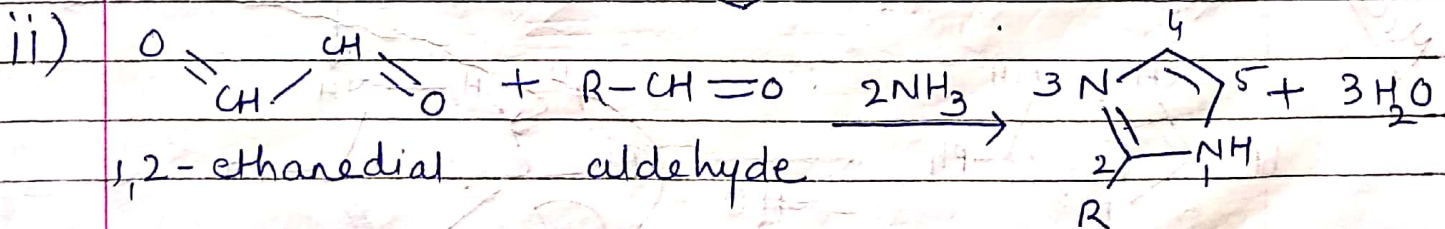 ii) O CH CH O + R-CH=O 2NH3 → 3 N 4 5 2 NH 1 R + 3H2O
1,2-ethanedial aldehyde